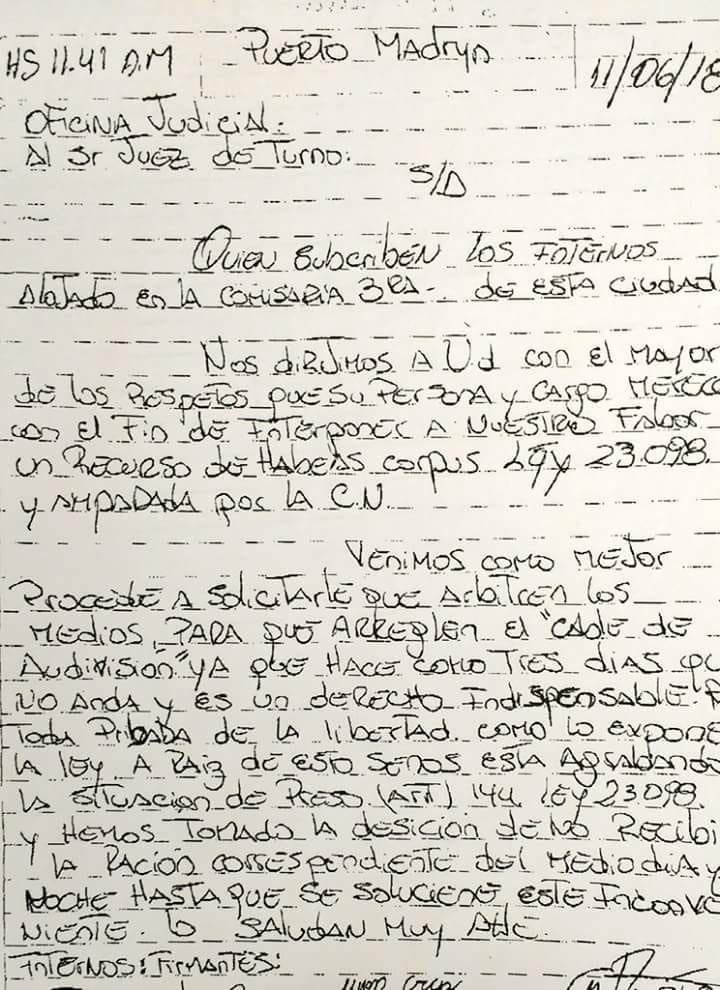 HS 11.41 A.M Puerto Madryn 11/06/18
Oficina Judicial:
Al Sr Juez de Turno:
S/D
Quien subscriben los Internos
Alojado en la Comisaria 3RA-. de esta ciudad
Nos dirjimos A Ud con el mayor
de los Respetos que su Persona y cargo merece
con el Fin de Interponer A Nuestro Fabor
un Recurso de Habeas corpus Ley 23.098.
y AMPARADA por la C.N.
Venimos como mejor
Procede A solicitarle que arbitren los
Medios, para que arreglen el "Cable de
Audivisión" ya que hace como tres dias qu
no anda y es un derecho Indispensable.
Toda Pribada de la libertad. como lo expone
la ley. A raiz de esto senos está Agrabando
la situacion de Preso (Art) 144 ley 23.098.
y Hemos Tomado la desicion de no Recibi
la Ración correspondiente del Mediodia y
Noche Hasta que se solucione este Inconve
niente. lo Saludan Muy Atte.
Internos: Firmantes: